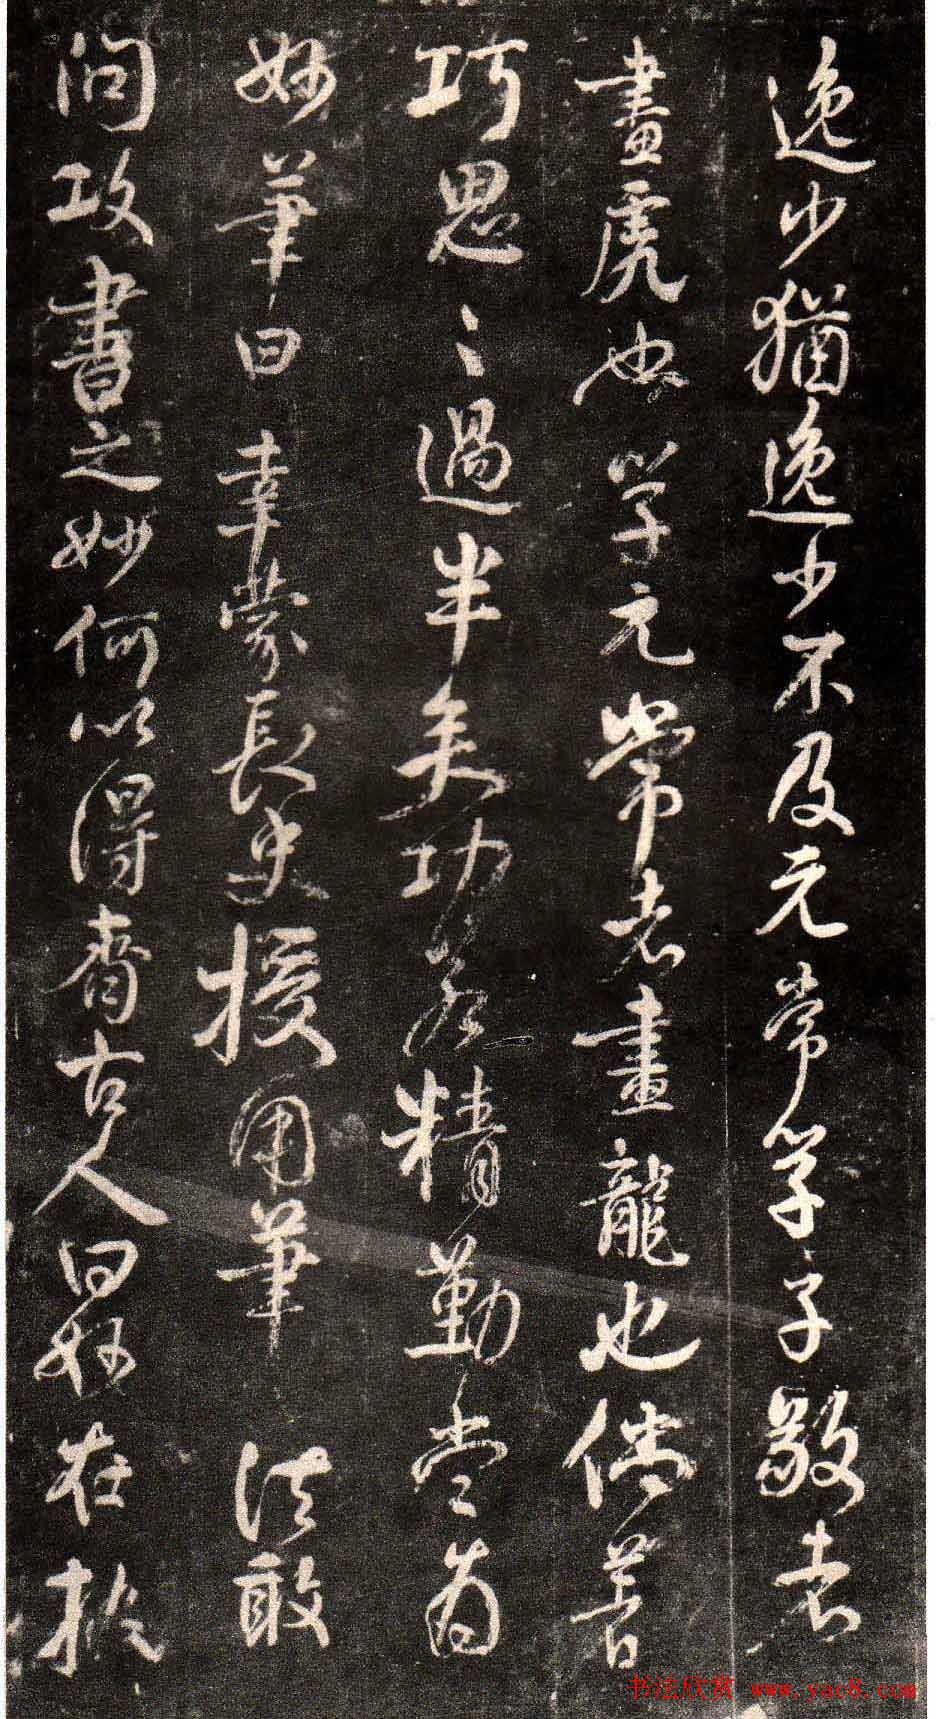 逸少猶逸少不及元常学子敬者
畫虎也学元常者畫龍也倘著
巧思〻過半矣功若精勤當為
妙筆曰幸蒙長史授用筆法敢
問攻書之妙何以得齊古人曰妙在執
书法欣赏 www.yac8.com